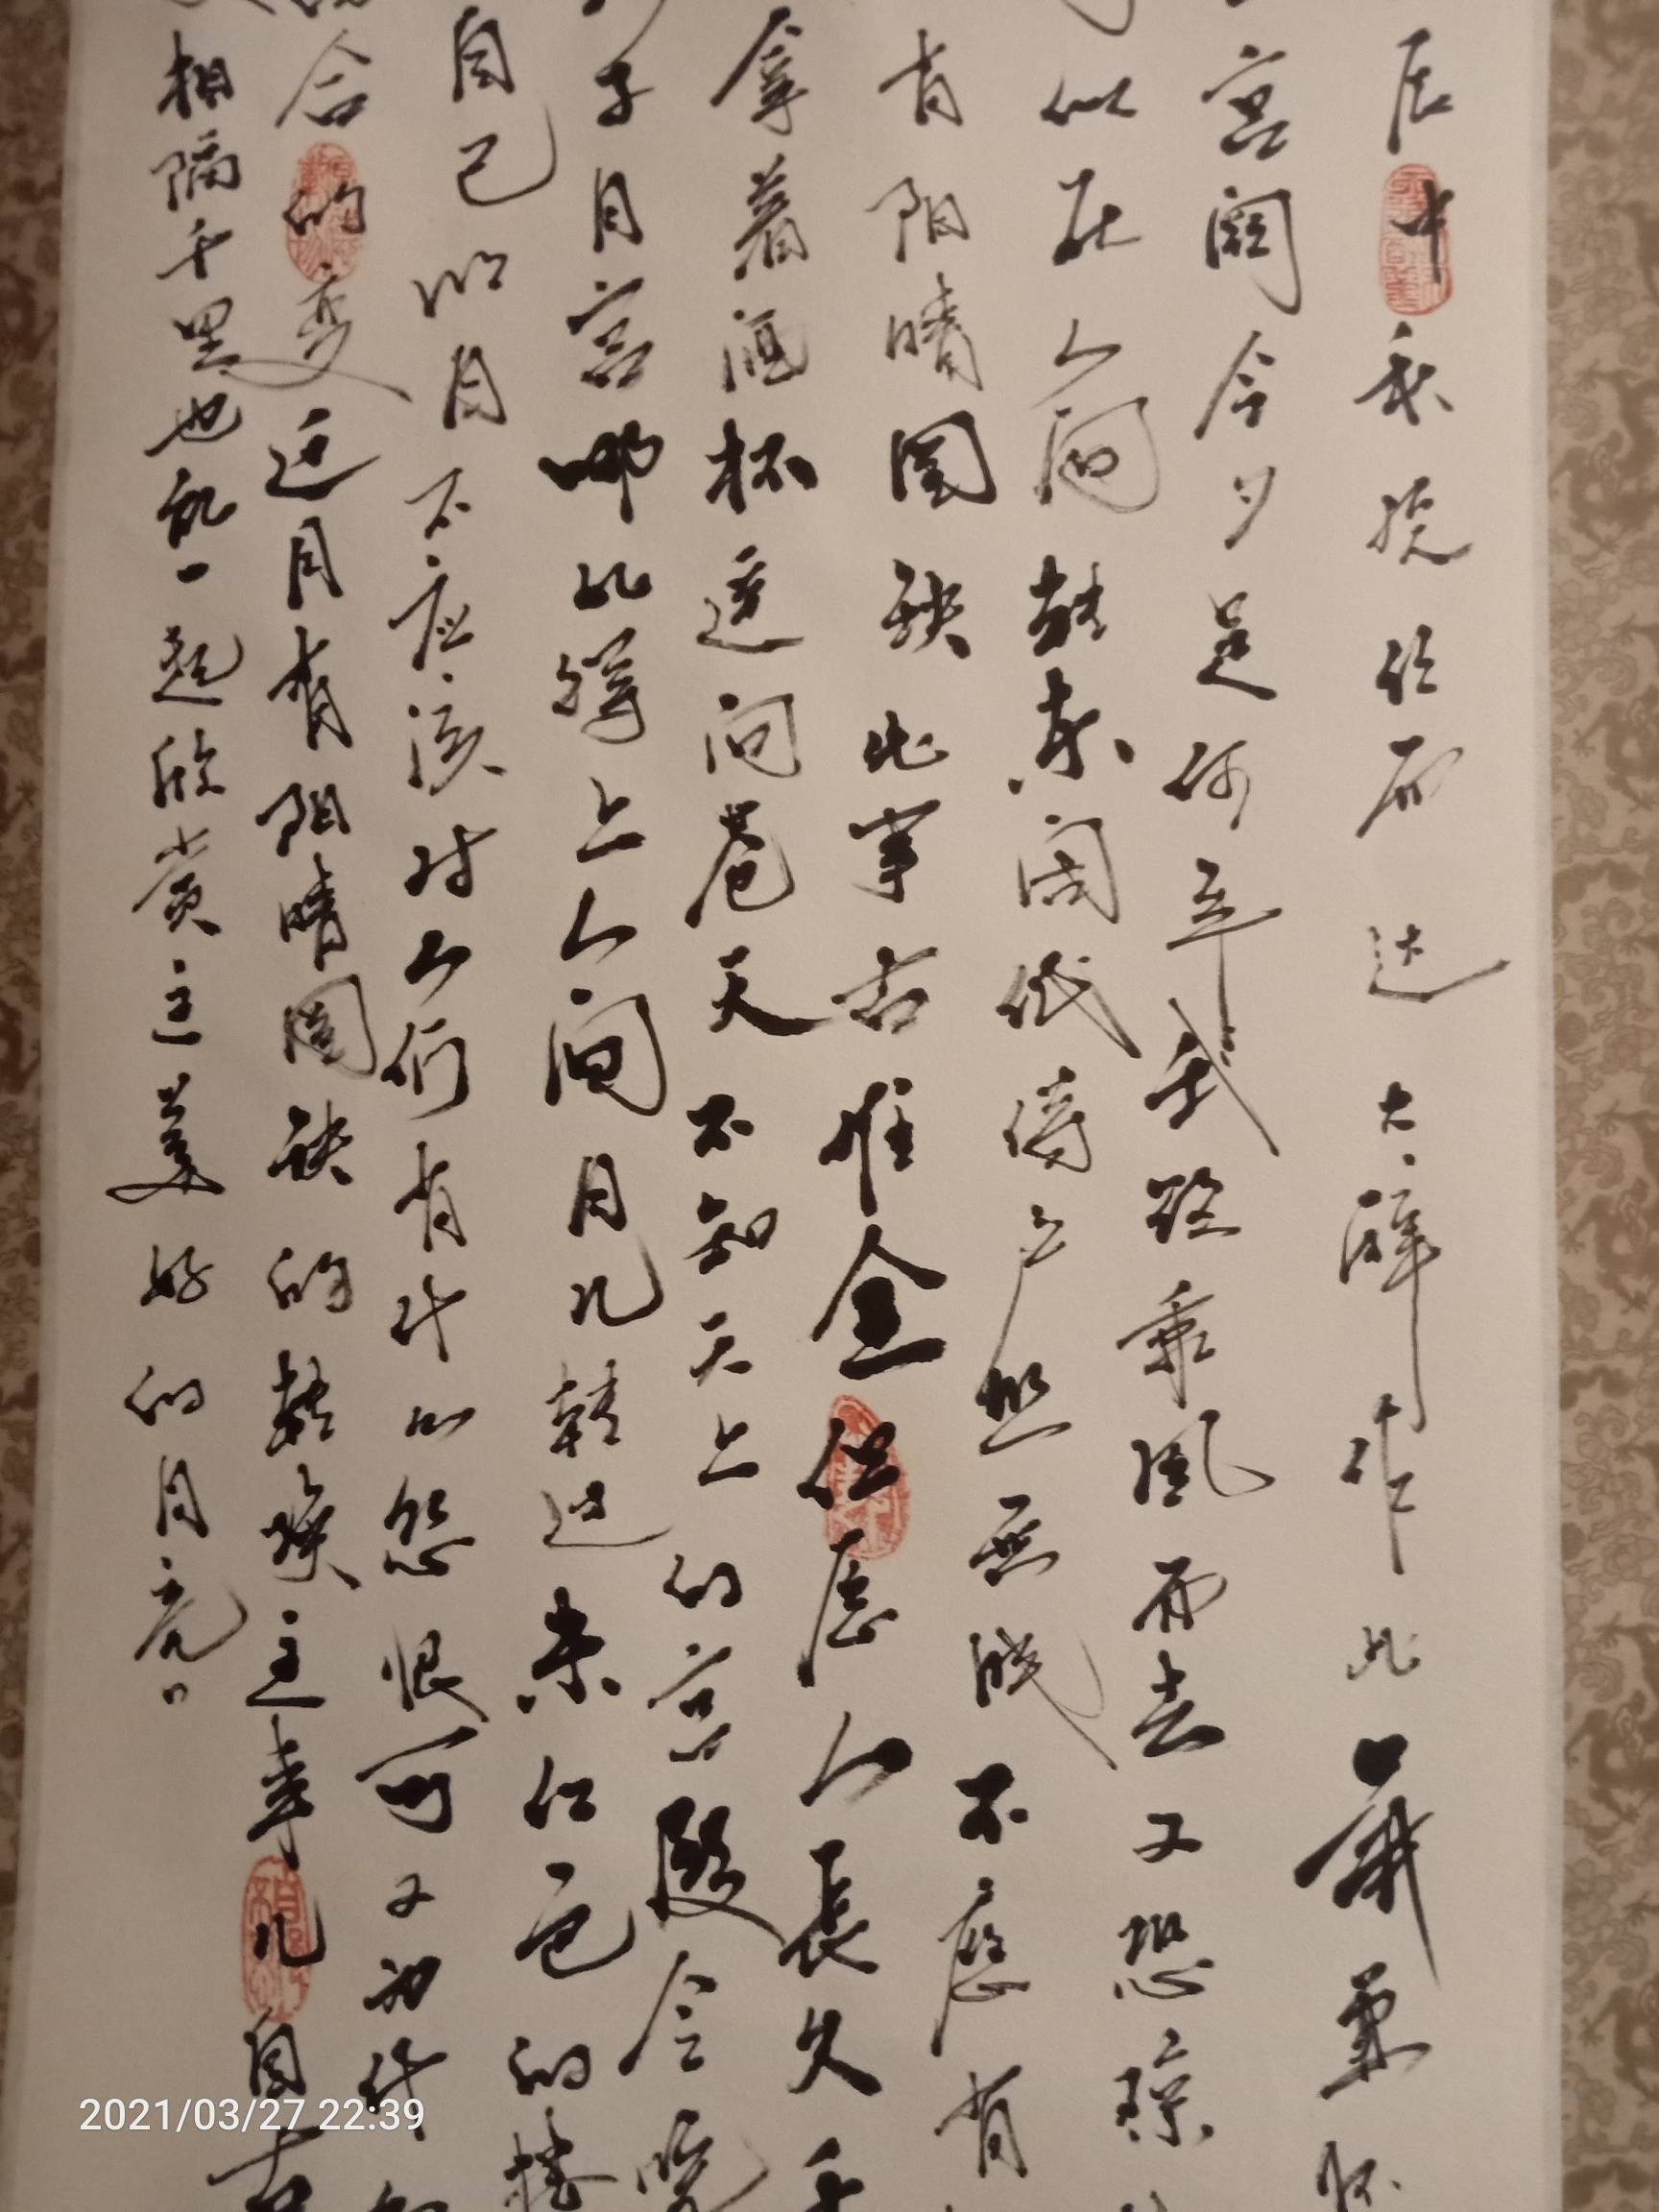 辰中秋达大醉作此篇兼怀
宫阙今夕是何年我欲乘風而去又恐琼
似在人间转朱阁低绮户照無眠不應有
有阴晴圆缺此事古难全但愿人長久千
拿着酒杯遥问苍天不知天上的宫殿今晚
子月宫哪比得上人间月儿转过朱红色的楼
自己明月不应该对人们有什么怨恨可又为什
合的变迁月有阴晴圆缺的转换这事儿自古
相隔千里也能一起欣赏这美好的月亮
2021/03/27 22:39